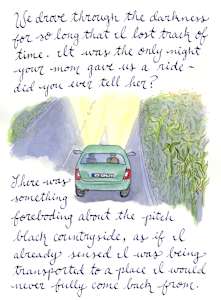 We drove through the darkness
for so long that I lost track of
time. It was the only night
your mom gave us a ride -
did you ever tell her?
There was
something
foreboding about the pitch
black countryside, as if I
already sensed I was being
transported to a place I would
never fully come back from.